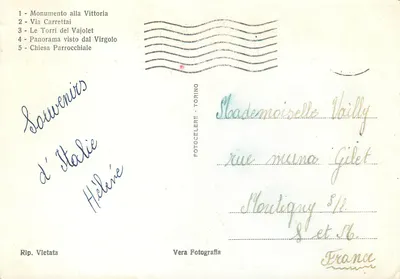 1 - Monumento alla Vittoria
2 - Via Carrettai
3 - Le Torri del Vajolet
4 - Panorama visto dal Virgolo
5 - Chiesa Parrocchiale
Souvenirs
d'Italie
Hélène
FOTOCELERE - TORINO
Mademoiselle Vailly
rue muna Gilet
Montigny s/L
S et M.
France
Rip. Vietata
Vera Fotografia